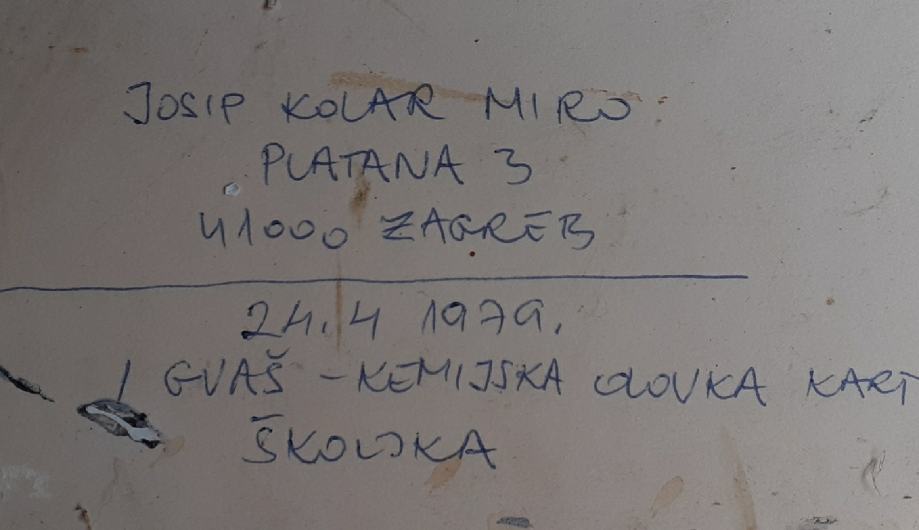 JOSIP KOLAR MIRO
PLATANA 3
41000 ZAGREB
24.4 1979.
/ GVAŠ - KEMIJSKA OLOVKA KART
ŠKOLJKA